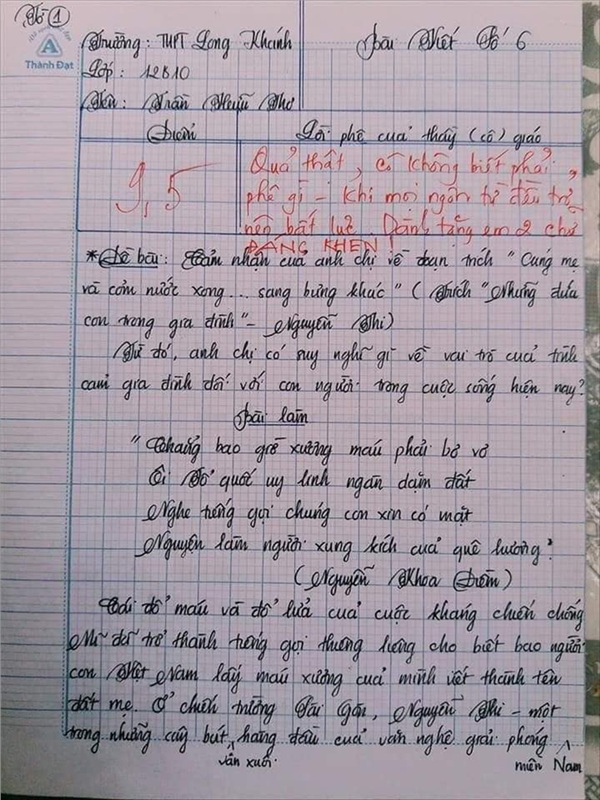 Tờ 1
Thành Đạt
Trường: THPT Long Khánh
Bài Viết Số 6
Lớp: 12B10
Tên: Trần Hữu Thơ
Điểm
Lời phê của thầy (cô) giáo
9,5
Quả thật, cô không biết phải
phê gì - Khi mọi ngôn từ đều trở
nên bất lực. Dành tặng em 2 chữ
ĐÁNG KHEN!
* Đề bài: Cảm nhận của anh chị về đoạn trích "Cúng mẹ
và cơm nước xong... sang bưng khác" (Trích "Những đứa
con trong gia đình" - Nguyễn Thi)
Từ đó, anh chị có suy nghĩ gì về vai trò của tình
cảm gia đình đối với con người trong cuộc sống hiện nay?
Bài làm
"Chẳng bao giờ xương máu phải bơ vơ
Ôi Tổ quốc uy linh ngàn dặm đất
Nghe tiếng gọi chúng con xin có mặt
Nguyện làm người xung kích của quê hương"
(Nguyễn Khoa Điềm)
Cái đổ máu và đổ lửa của cuộc kháng chiến chống
Mĩ đã trở thành tiếng gọi thương lương cho biết bao người
con Việt Nam lấy máu xương của mình viết thành tên
đất mẹ. Ở chiến trường Sài Gòn, Nguyễn Thi - một
trong những cây bút hàng đầu của văn nghệ giải phóng
văn xuôi
miền Nam